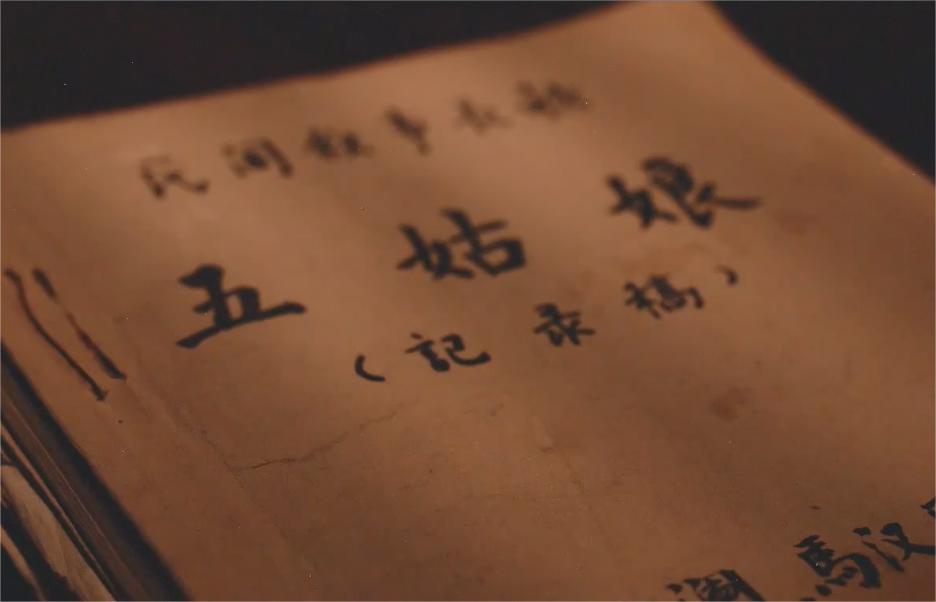 民间叙事长歌
五姑娘
（記录稿）
馬汉